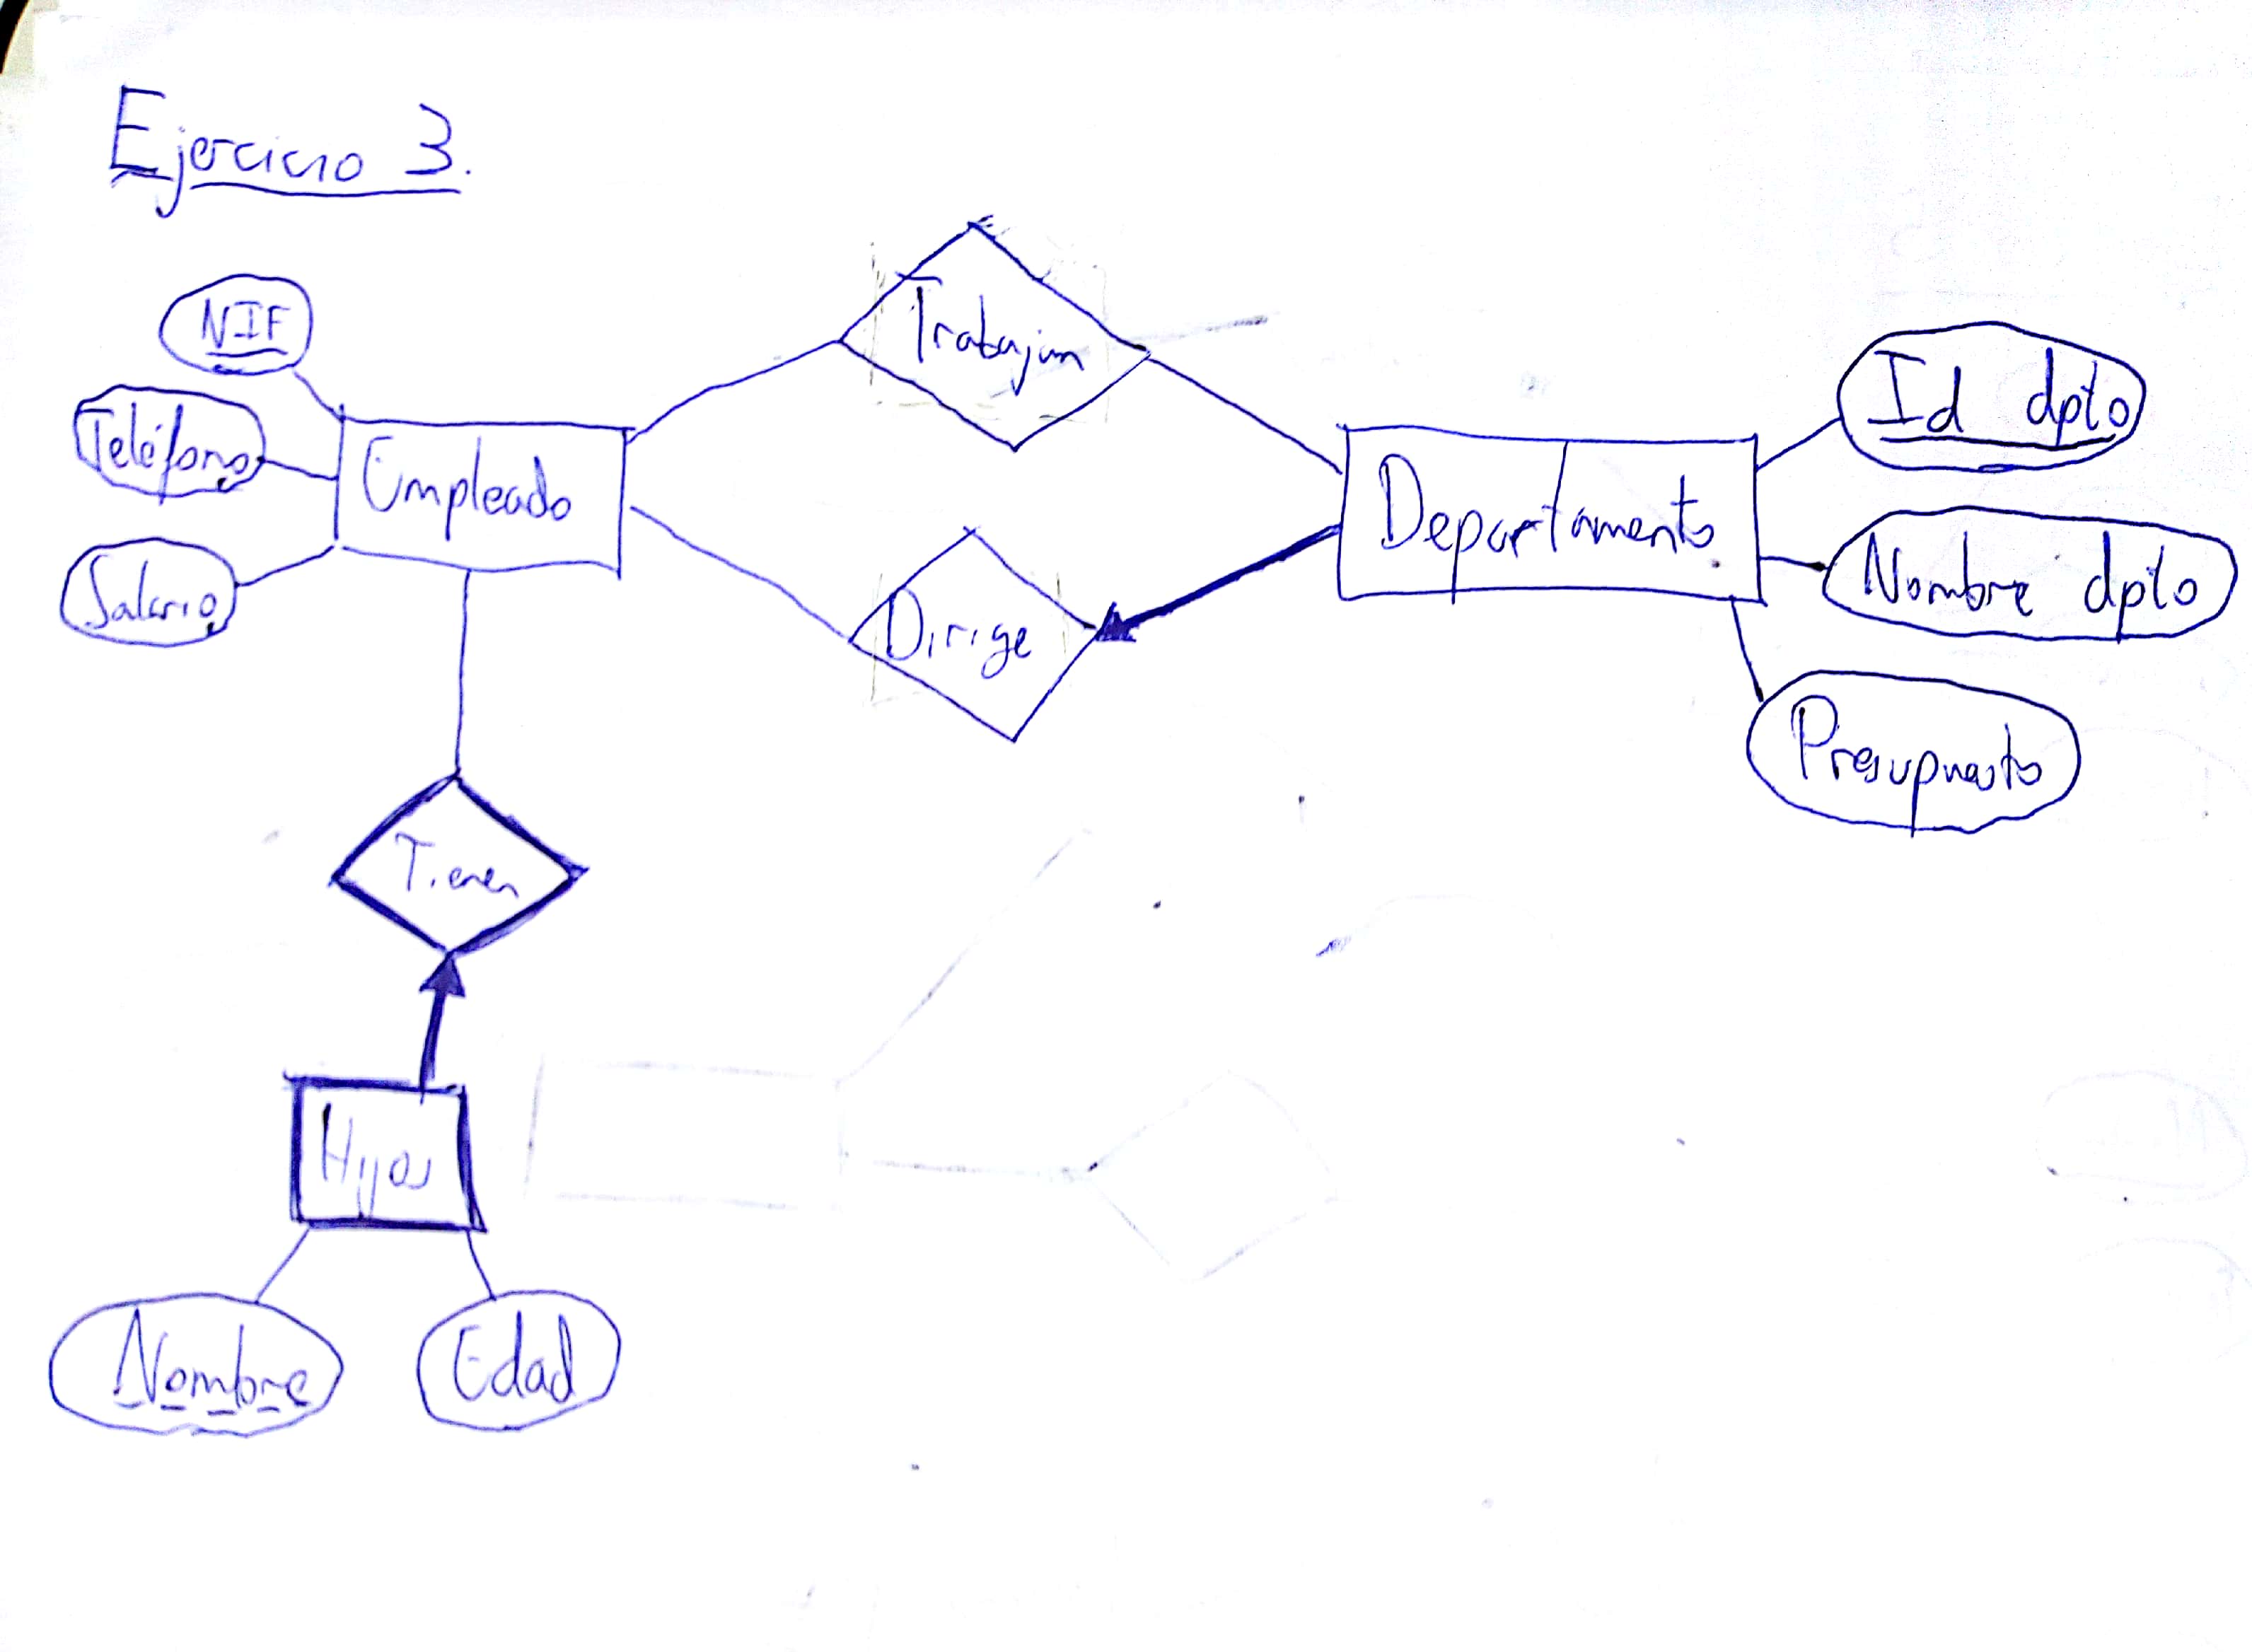 Ejercicio 3.
NIF
Teléfono
Salario
Empleado
Trabajan
Dirige
Departamento
Id dpto
Nombre dpto
Presupuesto
Tienen
Hijos
Nombre
Edad